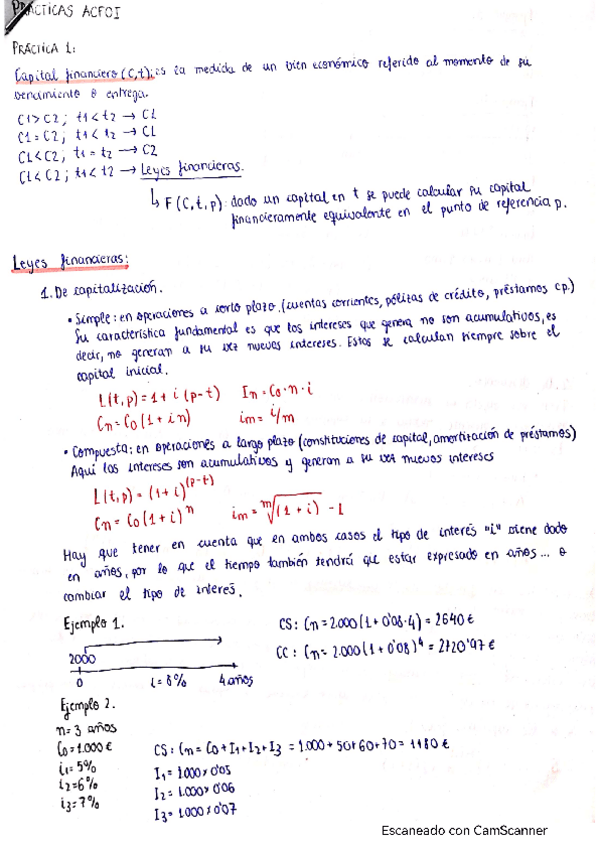 PRÁCTICAS ACFOI
PRÁCTICA 1:
Capital financiero (C,t): es la medida de un bien económico referido al momento de su
vencimiento o entrega.
C1 > C2 ; t1 < t2 → C1
C1 = C2 ; t1 < t2 → C1
C1 < C2 ; t1 = t2 → C2
C1 < C2 ; t1 < t2 → Leyes financieras.
↳ F (C, t, p): dado un capital en t se puede calcular su capital
financieramente equivalente en el punto de referencia p.
Leyes financieras:
1. De capitalización.
• Simple: en operaciones a corto plazo. (cuentas corrientes, pólizas de crédito, préstamos cp.)
Su característica fundamental es que los intereses que genera no son acumulativos, es
decir, no generan a su vez nuevos intereses. Estos se calculan siempre sobre el
capital inicial.
L(t,p) = 1 + i (p-t) In = C0 · n · i
Cn = C0 (1 + in) im = i/m
• Compuesta: en operaciones a largo plazo (constituciones de capital, amortización de préstamos)
Aquí los intereses son acumulativos y generan a su vez nuevos intereses
L(t,p) = (1+i)^(p-t)
Cn = C0 (1+i)^n im = m√(1+i) - 1
Hay que tener en cuenta que en ambos casos el tipo de interés "i" viene dado
en años, por lo que el tiempo también tendrá que estar expresado en años... o
cambiar el tipo de interés.
Ejemplo 1.
2000
0 i = 8% 4 años
CS: Cn = 2.000 (1 + 0'08 · 4) = 2640 €
CC: Cn = 2.000 (1 + 0'08)^4 = 2720'97 €
Ejemplo 2.
n = 3 años
C0 = 1.000 €
i1 = 5%
i2 = 6%
i3 = 7%
CS: Cn = C0 + I1 + I2 + I3 = 1.000 + 50 + 60 + 70 = 1180 €
I1 = 1000 x 0'05
I2 = 1.000 x 0'06
I3 = 1000 x 0'07
Escaneado con CamScanner